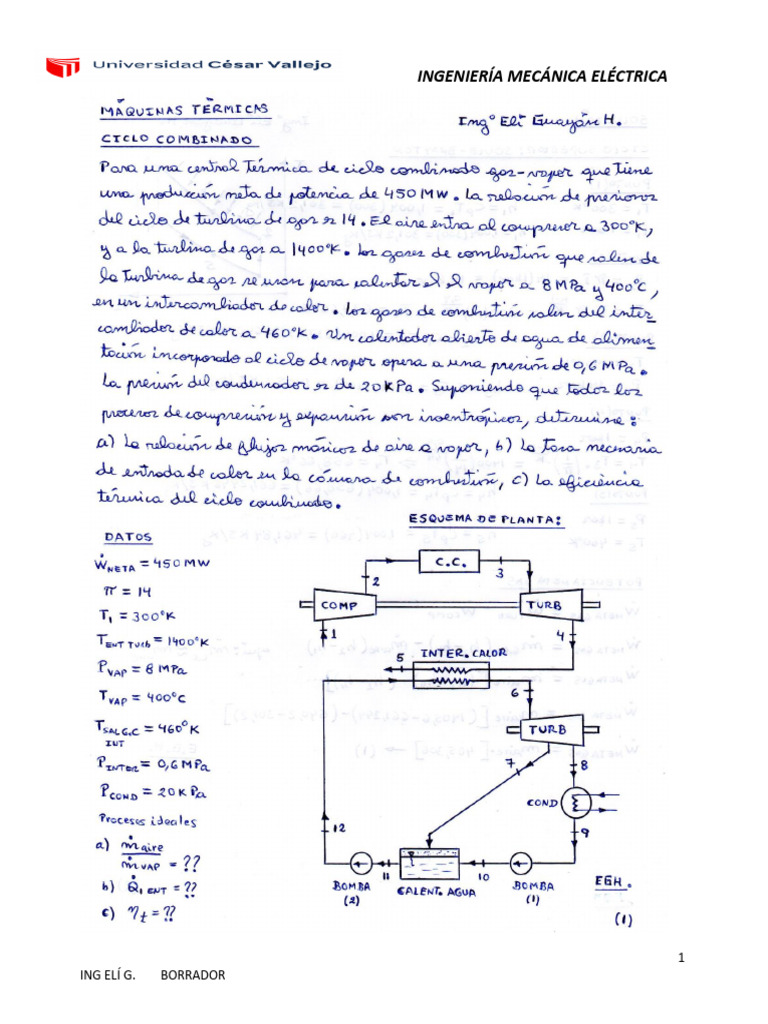 Universidad César Vallejo
INGENIERÍA MECÁNICA ELÉCTRICA
MÁQUINAS TÉRMICAS
Ing° Elí Guayán H.
CICLO COMBINADO
Para una central térmica de ciclo combinado gas-vapor que tiene
una producción neta de potencia de 450 MW. La relación de presiones
del ciclo de turbina de gas es 14. El aire entra al compresor a 300°K,
y a la turbina de gas a 1400°K. Los gases de combustión que salen de
la turbina de gas se usan para calentar el el vapor a 8 MPa y 400°C,
en un intercambiador de calor. Los gases de combustión salen del inter_
cambiador de calor a 460°K. Un calentador abierto de agua de alimen_
tación incorporado al ciclo de vapor opera a una presión de 0,6 MPa.
La presión del condensador es de 20KPa. Suponiendo que todos los
procesos de compresión y expansión son isoentrópicos, determine:
a) La relación de flujos másicos de aire a vapor, b) La tasa necesaria
de entrada de calor en la cámara de combustión, c) La eficiencia
térmica del ciclo combinado.
ESQUEMA DE PLANTA:
DATOS
ẆNETA = 450 MW
π = 14
T1 = 300°K
TENT TURB = 1400°K
PVAP = 8 MPa
TVAP = 400°C
TSAL G.C = 460°K
INT
PINTER = 0,6 MPa
PCOND = 20 KPa
Procesos ideales
a) ṁaire
ṁVAP = ??
b) Q̇1 ENT = ??
c) ηt = ??
C.C.
2
3
COMP
TURB
1
4
5
INTER. CALOR
6
TURB
7
8
COND
12
9
11
10
BOMBA
(2)
CALENT. AGUA
BOMBA
(1)
EGH.
(1)
1
ING ELÍ G. BORRADOR